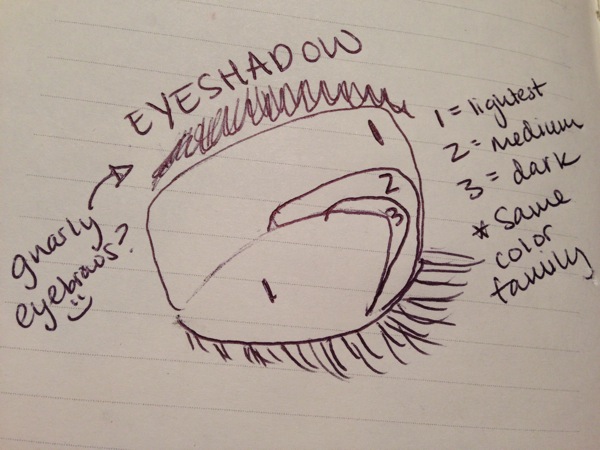 EYESHADOW
gnarly
eyebrows?
1
2
3
1
1 = lightest
2 = medium
3 = dark
* Same
color
family